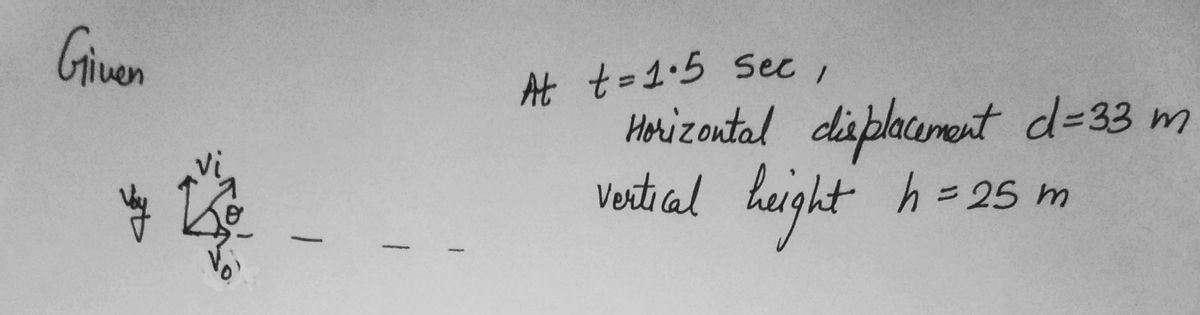 Given
At t=1.5 sec,
Horizontal displacement d=33 m
vertical height h = 25 m
vi
θ